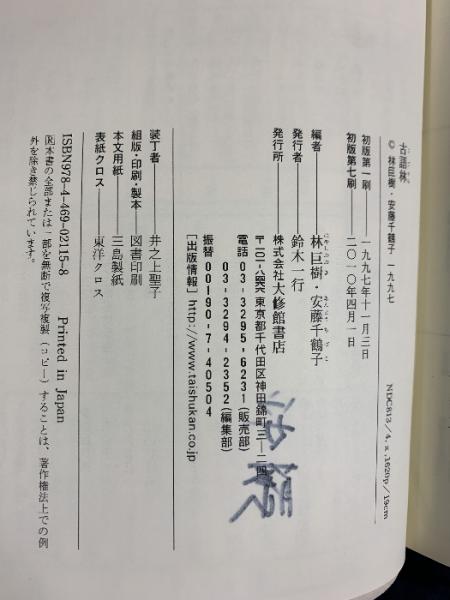 古語林
© 林巨樹・安藤千鶴子 一九九七
NDC813/4, x, 1620p/19cm
初版第一刷 一九九七年十一月三日
初版第七刷 二〇一〇年四月一日
編者 林巨樹・安藤千鶴子
発行者 鈴木一行
発行所 株式会社大修館書店
東京都千代田区神田錦町三―二四
電話 03-3295-6231(販売部)
03-3294-2352(編集部)
振替 00190-7-40504
[出版情報] http://www.taishukan.co.jp
装丁者 井之上聖子
組版・印刷・製本 図書印刷
本文用紙 三島製紙
表紙クロス 東洋クロス
ISBN978-4-469-02115-8 Printed in Japan
Ⓡ本書の全部または一部を無断で複写複製(コピー)することは、著作権法上での例
外を除き禁じられています。